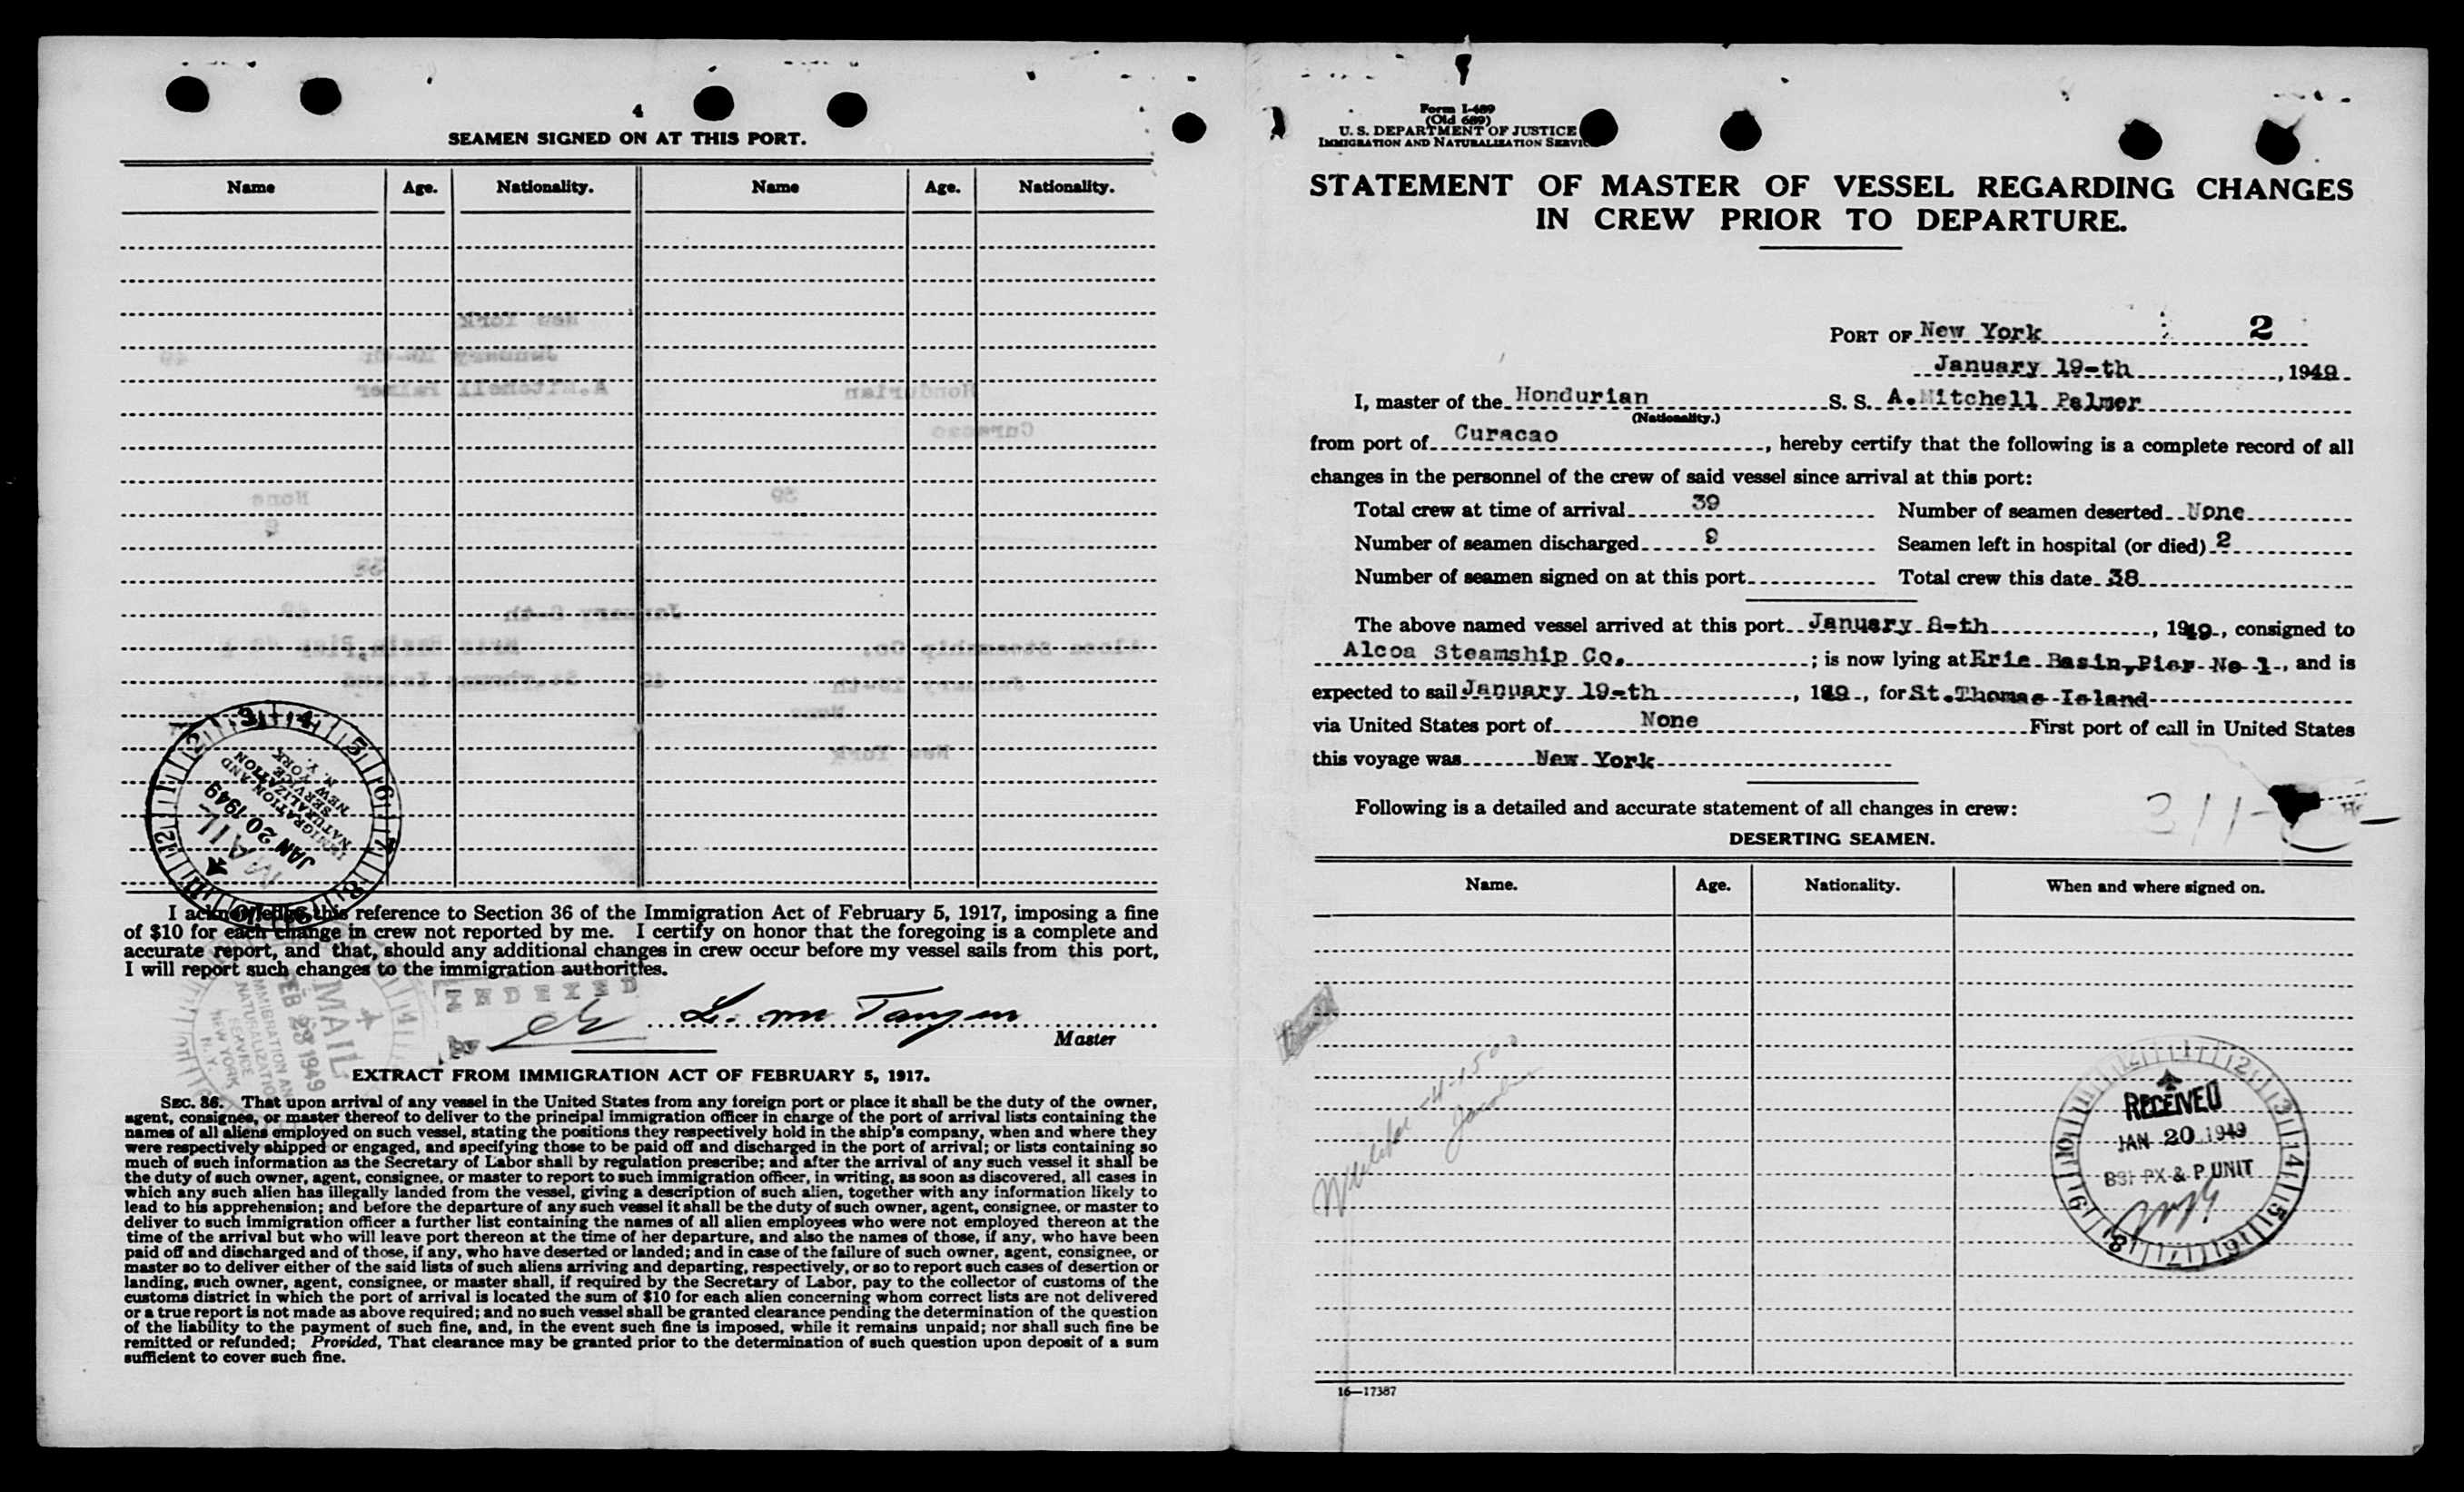 4
SEAMEN SIGNED ON AT THIS PORT.
Name Age. Nationality. Name Age. Nationality.
MAIL
JAN 20 1949
IMMIGRATION AND
NATURALIZATION
SERVICE
NEW YORK
N. Y.
I acknowledge this reference to Section 36 of the Immigration Act of February 5, 1917, imposing a fine
of $10 for each change in crew not reported by me. I certify on honor that the foregoing is a complete and
accurate report, and that, should any additional changes in crew occur before my vessel sails from this port,
I will report such changes to the immigration authorities.
INDEXED
Master
MAIL
FEB 23 1949
IMMIGRATION AND
NATURALIZATION
SERVICE
NEW YORK
N. Y.
EXTRACT FROM IMMIGRATION ACT OF FEBRUARY 5, 1917.
SEC. 36. That upon arrival of any vessel in the United States from any foreign port or place it shall be the duty of the owner,
agent, consignee, or master thereof to deliver to the principal immigration officer in charge of the port of arrival lists containing the
names of all aliens employed on such vessel, stating the positions they respectively hold in the ship's company, when and where they
were respectively shipped or engaged, and specifying those to be paid off and discharged in the port of arrival; or lists containing so
much of such information as the Secretary of Labor shall by regulation prescribe; and after the arrival of any such vessel it shall be
the duty of such owner, agent, consignee, or master to report to such immigration officer, in writing, as soon as discovered, all cases in
which any such alien has illegally landed from the vessel, giving a description of such alien, together with any information likely to
lead to his apprehension; and before the departure of any such vessel it shall be the duty of such owner, agent, consignee, or master to
deliver to such immigration officer a further list containing the names of all alien employees who were not employed thereon at the
time of the arrival but who will leave port thereon at the time of her departure, and also the names of those, if any, who have been
paid off and discharged and of those, if any, who have deserted or landed; and in case of the failure of such owner, agent, consignee, or
master so to deliver either of the said lists of such aliens arriving and departing, respectively, or so to report such cases of desertion or
landing, such owner, agent, consignee, or master shall, if required by the Secretary of Labor, pay to the collector of customs of the
customs district in which the port of arrival is located the sum of $10 for each alien concerning whom correct lists are not delivered
or a true report is not made as above required; and no such vessel shall be granted clearance pending the determination of the question
of the liability to the payment of such fine, and, in the event such fine is imposed, while it remains unpaid; nor shall such fine be
remitted or refunded; Provided, That clearance may be granted prior to the determination of such question upon deposit of a sum
sufficient to cover such fine.
Form I-489
(Old 689)
U. S. DEPARTMENT OF JUSTICE
IMMIGRATION AND NATURALIZATION SERVICE
STATEMENT OF MASTER OF VESSEL REGARDING CHANGES
IN CREW PRIOR TO DEPARTURE.
PORT OF New York 2
January 19-th, 1949
I, master of the Hondurian S. S. A.Mitchell Palmer
(Nationality.)
from port of Curacao, hereby certify that the following is a complete record of all
changes in the personnel of the crew of said vessel since arrival at this port:
Total crew at time of arrival 39 Number of seamen deserted None
Number of seamen discharged 9 Seamen left in hospital (or died) 2
Number of seamen signed on at this port Total crew this date 38
The above named vessel arrived at this port January 8-th, 1949, consigned to
Alcoa Steamship Co. ; is now lying at Erie Basin,Pier No 1, and is
expected to sail January 19-th, 1949, for St.Thomas Island
via United States port of None First port of call in United States
this voyage was New York
Following is a detailed and accurate statement of all changes in crew:
311-
DESERTING SEAMEN.
Name. Age. Nationality. When and where signed on.
RECEIVED
JAN 20 1949
BSI PX & P UNIT
16—17387